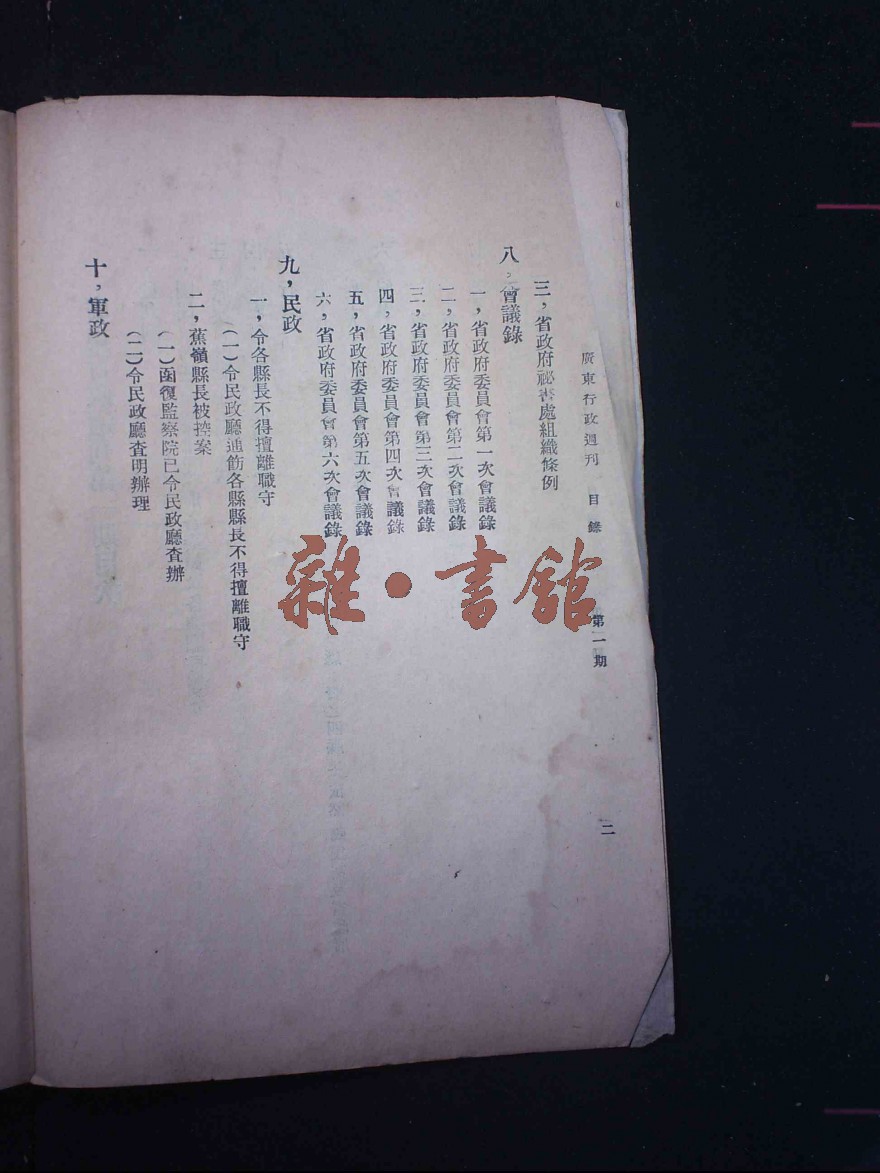 廣東行政週刊 目錄 第一期 二
三，省政府祕書處組織條例
八，會議錄
一，省政府委員會第一次會議錄
二，省政府委員會第二次會議錄
三，省政府委員會第三次會議錄
四，省政府委員會第四次會議錄
五，省政府委員會第五次會議錄
六，省政府委員會第六次會議錄
九，民政
一，令各縣長不得擅離職守
（一）令民政廳通飭各縣縣長不得擅離職守
二，蕉嶺縣長被控案
（一）函復監察院已令民政廳查辦
（二）令民政廳查明辦理
十，軍政
雜·書館